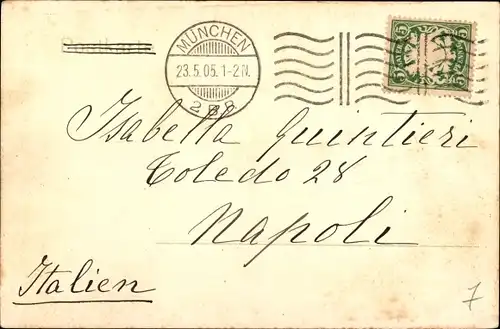 Postkarte
MÜNCHEN
23.5.05. 1-2 N.
2 B.P.
5 5
BAYERN
5 5
Isabella Quintieri
Toledo 28
Napoli
Italien
7